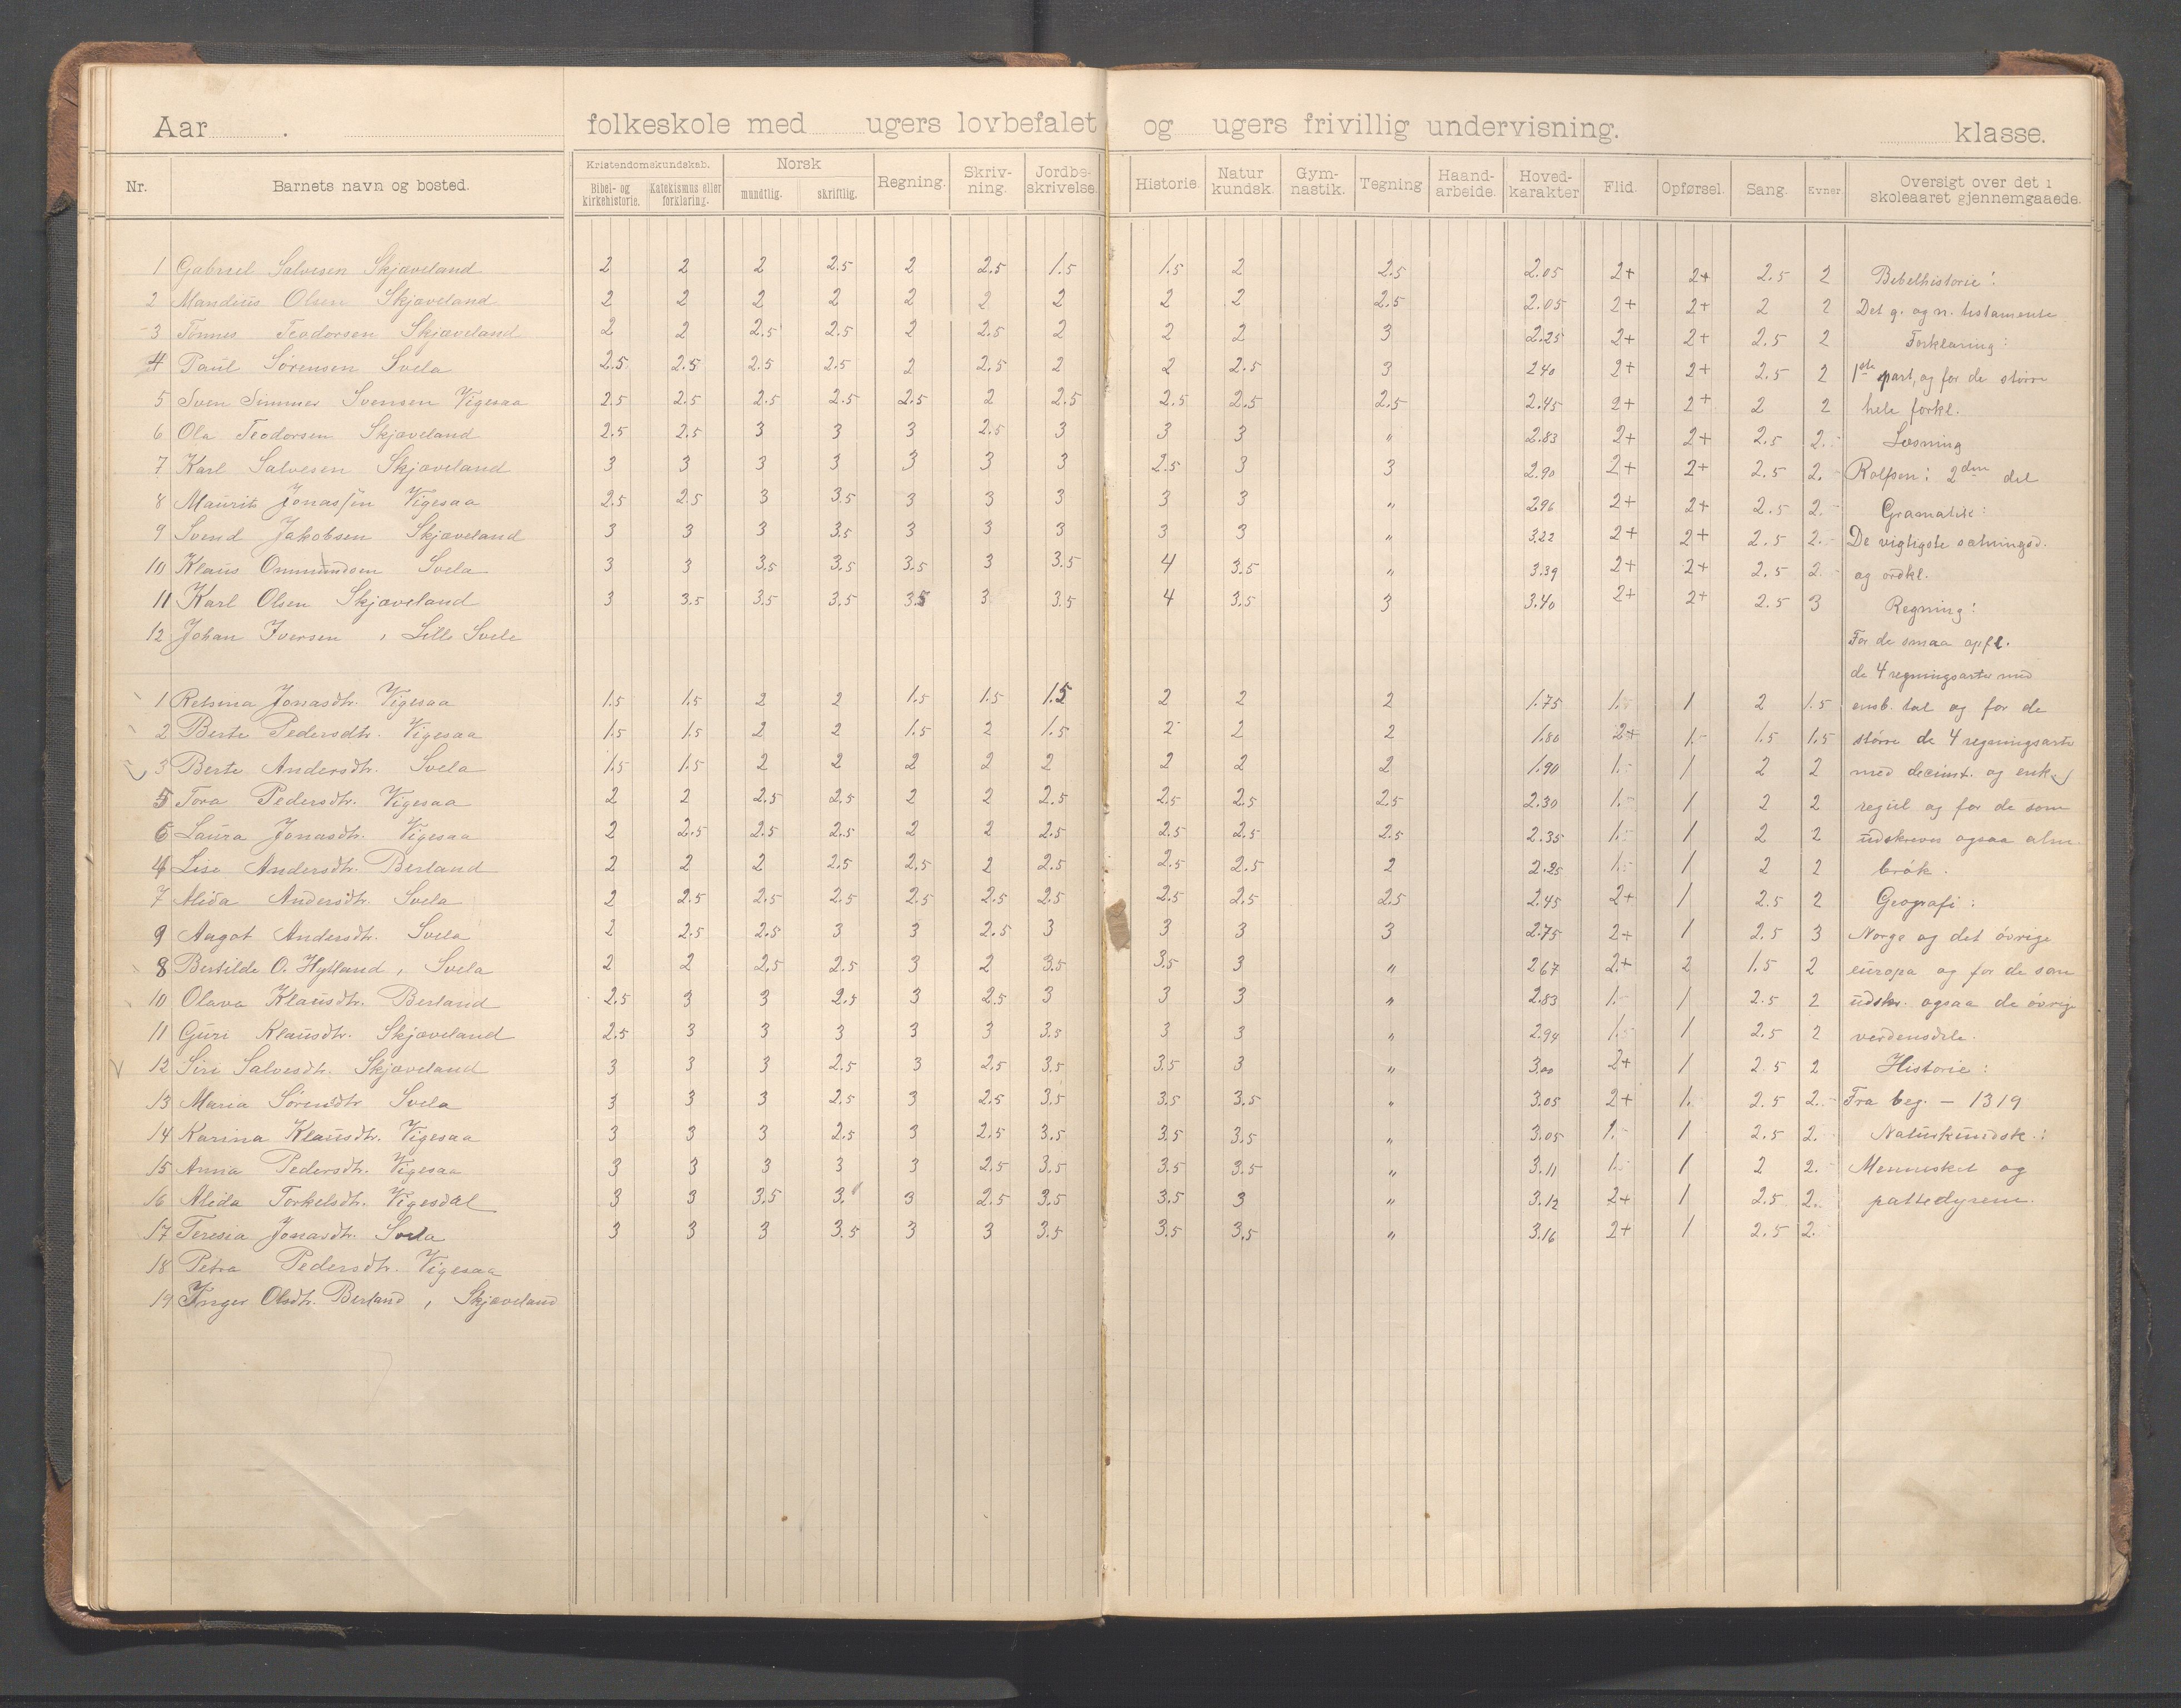 Aar . folkeskole med ugers lovbefalet og ugers frivillig undervisning. klasse.
Nr. Barnets navn og bosted. Kristendomskundskab. Bibel- og kirkehistorie. Katekismus eller forklaring. Norsk mundtlig. skriftlig. Regning. Skriv-ning. Jordbe-skrivelse. Historie. Natur kundsk. Gym-nastik. Tegning Haand-arbeide. Hoved-karakter Flid. Opførsel. Sang. Evner. Oversigt over det i skoleaaret gjennemgaaede.
1 Gabriel Salvesen Skjæveland 2 2 2 2.5 2 2.5 1.5 1.5 2 2.5 2.05 2+ 2+ 2.5 2 Bibelhistorie:
2 Mandius Olsen Skjæveland 2 2 2 2 2 2 2 2 2 2.5 2.05 2+ 2+ 2 2 Det g. og n. testamente
3 Tønnes Teodorsen Skjæveland 2 2 2.5 2.5 2 2.5 2 2 2 3 2.25 2+ 2+ 2.5 2 Forklaring:
4 Paul Sørensen Svela 2.5 2.5 2.5 2.5 2 2.5 2 2 2.5 3 2.40 2+ 2+ 2.5 2 1ste part, og for de større
5 Sven Svensen Vigesaa 2.5 2.5 2.5 2.5 2.5 2 2.5 2.5 2.5 2.5 2.45 2+ 2+ 2 2 hele forkl.
6 Ola Teodorsen Skjæveland 2.5 2.5 3 3 3 2.5 3 3 3 " 2.83 2+ 2+ 2.5 2.- Læsning
7 Karl Salvesen Skjæveland 3 3 3 3 3 3 3 2.5 3 3 2.90 2+ 2+ 2.5 2.- Rolfsen: 2den del
8 Maurits Jonassen Vigesaa 2.5 2.5 3 3.5 3 3 3 3 3 " 2.96 2+ 2+ 2.5 2.- Gramatik:
9 Svend Jakobsen Skjæveland 3 3 3 3.5 3 3 3 3 3 " 3.22 2+ 2+ 2.5 2.- De vigtigste sætningsd.
10 Klaus Ommundsen Svela 3 3 3.5 3.5 3.5 3 3.5 4 3.5 " 3.39 2+ 2+ 2.5 2.- og ordkl.
11 Karl Olsen Skjæveland 3 3.5 3.5 3.5 3.5 3 3.5 4 3.5 3 3.40 2+ 2+ 2.5 3 Regning:
12 Johan Iversen, Lille Svele For de smaa opfl.
de 4 regningsarter med
1 Retsina Jonasdtr. Vigesaa 1.5 1.5 2 2 1.5 1.5 1.5 2 2 2 1.75 1.- 1 2 1.5 ensb. tal og for de
2 Berte Pedersdtr. Vigesaa 1.5 1.5 2 2 1.5 2 1.5 2 2 2 1.80 2+ 1.- 1.5 1.5 større de 4 regningsarter
3 Berte Andersdtr. Svela 1.5 1.5 2 2 2 2 2 2 2 2 1.90 1.- 1 2 2 med decimt. og enk.
5 Tora Pedersdtr. Vigesaa 2 2 2.5 2.5 2 2 2.5 2.5 2.5 2.5 2.30 1.- 1 2 2 regul og for de som
6 Laura Jonasdtr. Vigesaa 2 2.5 2.5 2.5 2 2 2.5 2.5 2.5 2.5 2.35 1.- 1 2 2 udskrives ogsaa alm.
4 Lise Andersdtr. Berland 2 2 2 2.5 2.5 2 2.5 2.5 2.5 2 2.25 1.- 1 2 2 brøk.
7 Alida Andersdtr. Svela 2 2.5 2.5 2.5 2.5 2.5 2.5 2.5 2.5 2.5 2.45 2+ 1 2.5 2 Geografi:
9 Aagot Andersdtr. Svela 2 2.5 2.5 3 3 2.5 3 3 3 3 2.75 2+ 1 2.5 3 Norge og det øvrige
8 Bertilde O. Hytland, Svela 2 2 2.5 2.5 3 2 3.5 3.5 3 " 2.67 2.+ 2 1.5 2 europa og for de som
10 Olava Klausdtr. Berland 2.5 3 3 2.5 3 2.5 3 3 3 " 2.83 1.- 1 2.5 2 udskr. ogsaa de øvrige
11 Guri Klausdtr. Skjæveland 2.5 3 3 3 3 3 3.5 3 3 " 2.94 1.- 1 2.5 2 verdensdele.
12 Siri Salvesdtr. Skjæveland 3 3 3 2.5 3 2.5 3.5 3.5 3 " 3.00 2+ 1 2.5 2 Historie:
13 Maria Sørensdtr Svela 3 3 3 2.5 3 2.5 3.5 3.5 3.5 " 3.05 2+ 1. 2.5 2.- Fra beg. - 1319
14 Karina Klausdtr. Vigesaa 3 3 3 2.5 3 2.5 3.5 3.5 3.5 " 3.05 1.- 1 2.5 2. Naturkundsk.:
15 Anna Pedersdtr. Vigesaa 3 3 3 3 3 2.5 3.5 3.5 3.5 " 3.11 1.- 1 2 2.- Mennesket og
16 Alida Torkelsdtr. Vigesdal 3 3 3.5 3. 3 2.5 3.5 3.5 3 " 3.12 2+ 1 2.5 2. pattedyrene.
17 Teresia Jonasdtr. Svela 3 3 3 3.5 3 3 3.5 3.5 3.5 " 3.16 2+ 1 2.5 2.
18 Petra Pedersdtr. Vigesaa
19 Inger Olsdtr. Berland, Skjæveland